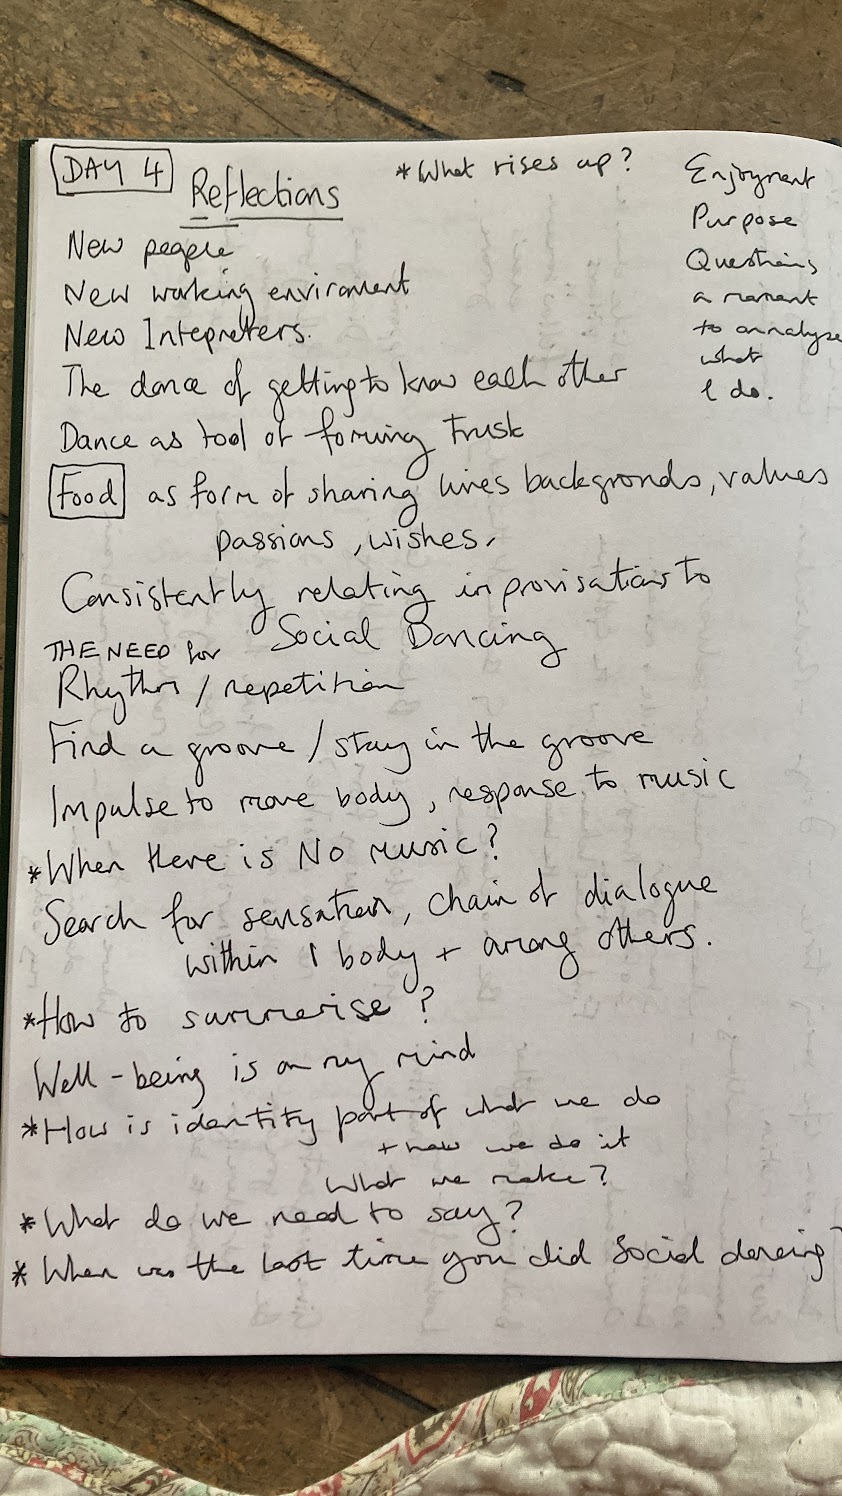 DAY 4
Reflections
*What rises up?
Enjoyment
Purpose
Questions
a moment
to annalyse
what
I do.
New people
New working enviroment
New Intepreters.
The dance of getting to know each other
Dance as tool of forming trust
Food as form of sharing lives backgronds, values
passions, wishes,
Consistently relating improvisations to
Social Dancing
THE NEED for
Rhythm / repetition
Find a groove / stay in the groove
Impulse to move body, response to music
*When there is No music?
Search for sensation, chain of dialogue
within 1 body + among others.
*How to summerise?
Well-being is on my mind
*How is identity part of what we do
+ how we do it
What we make?
*What do we need to say?
*When was the last time you did Social dancing?